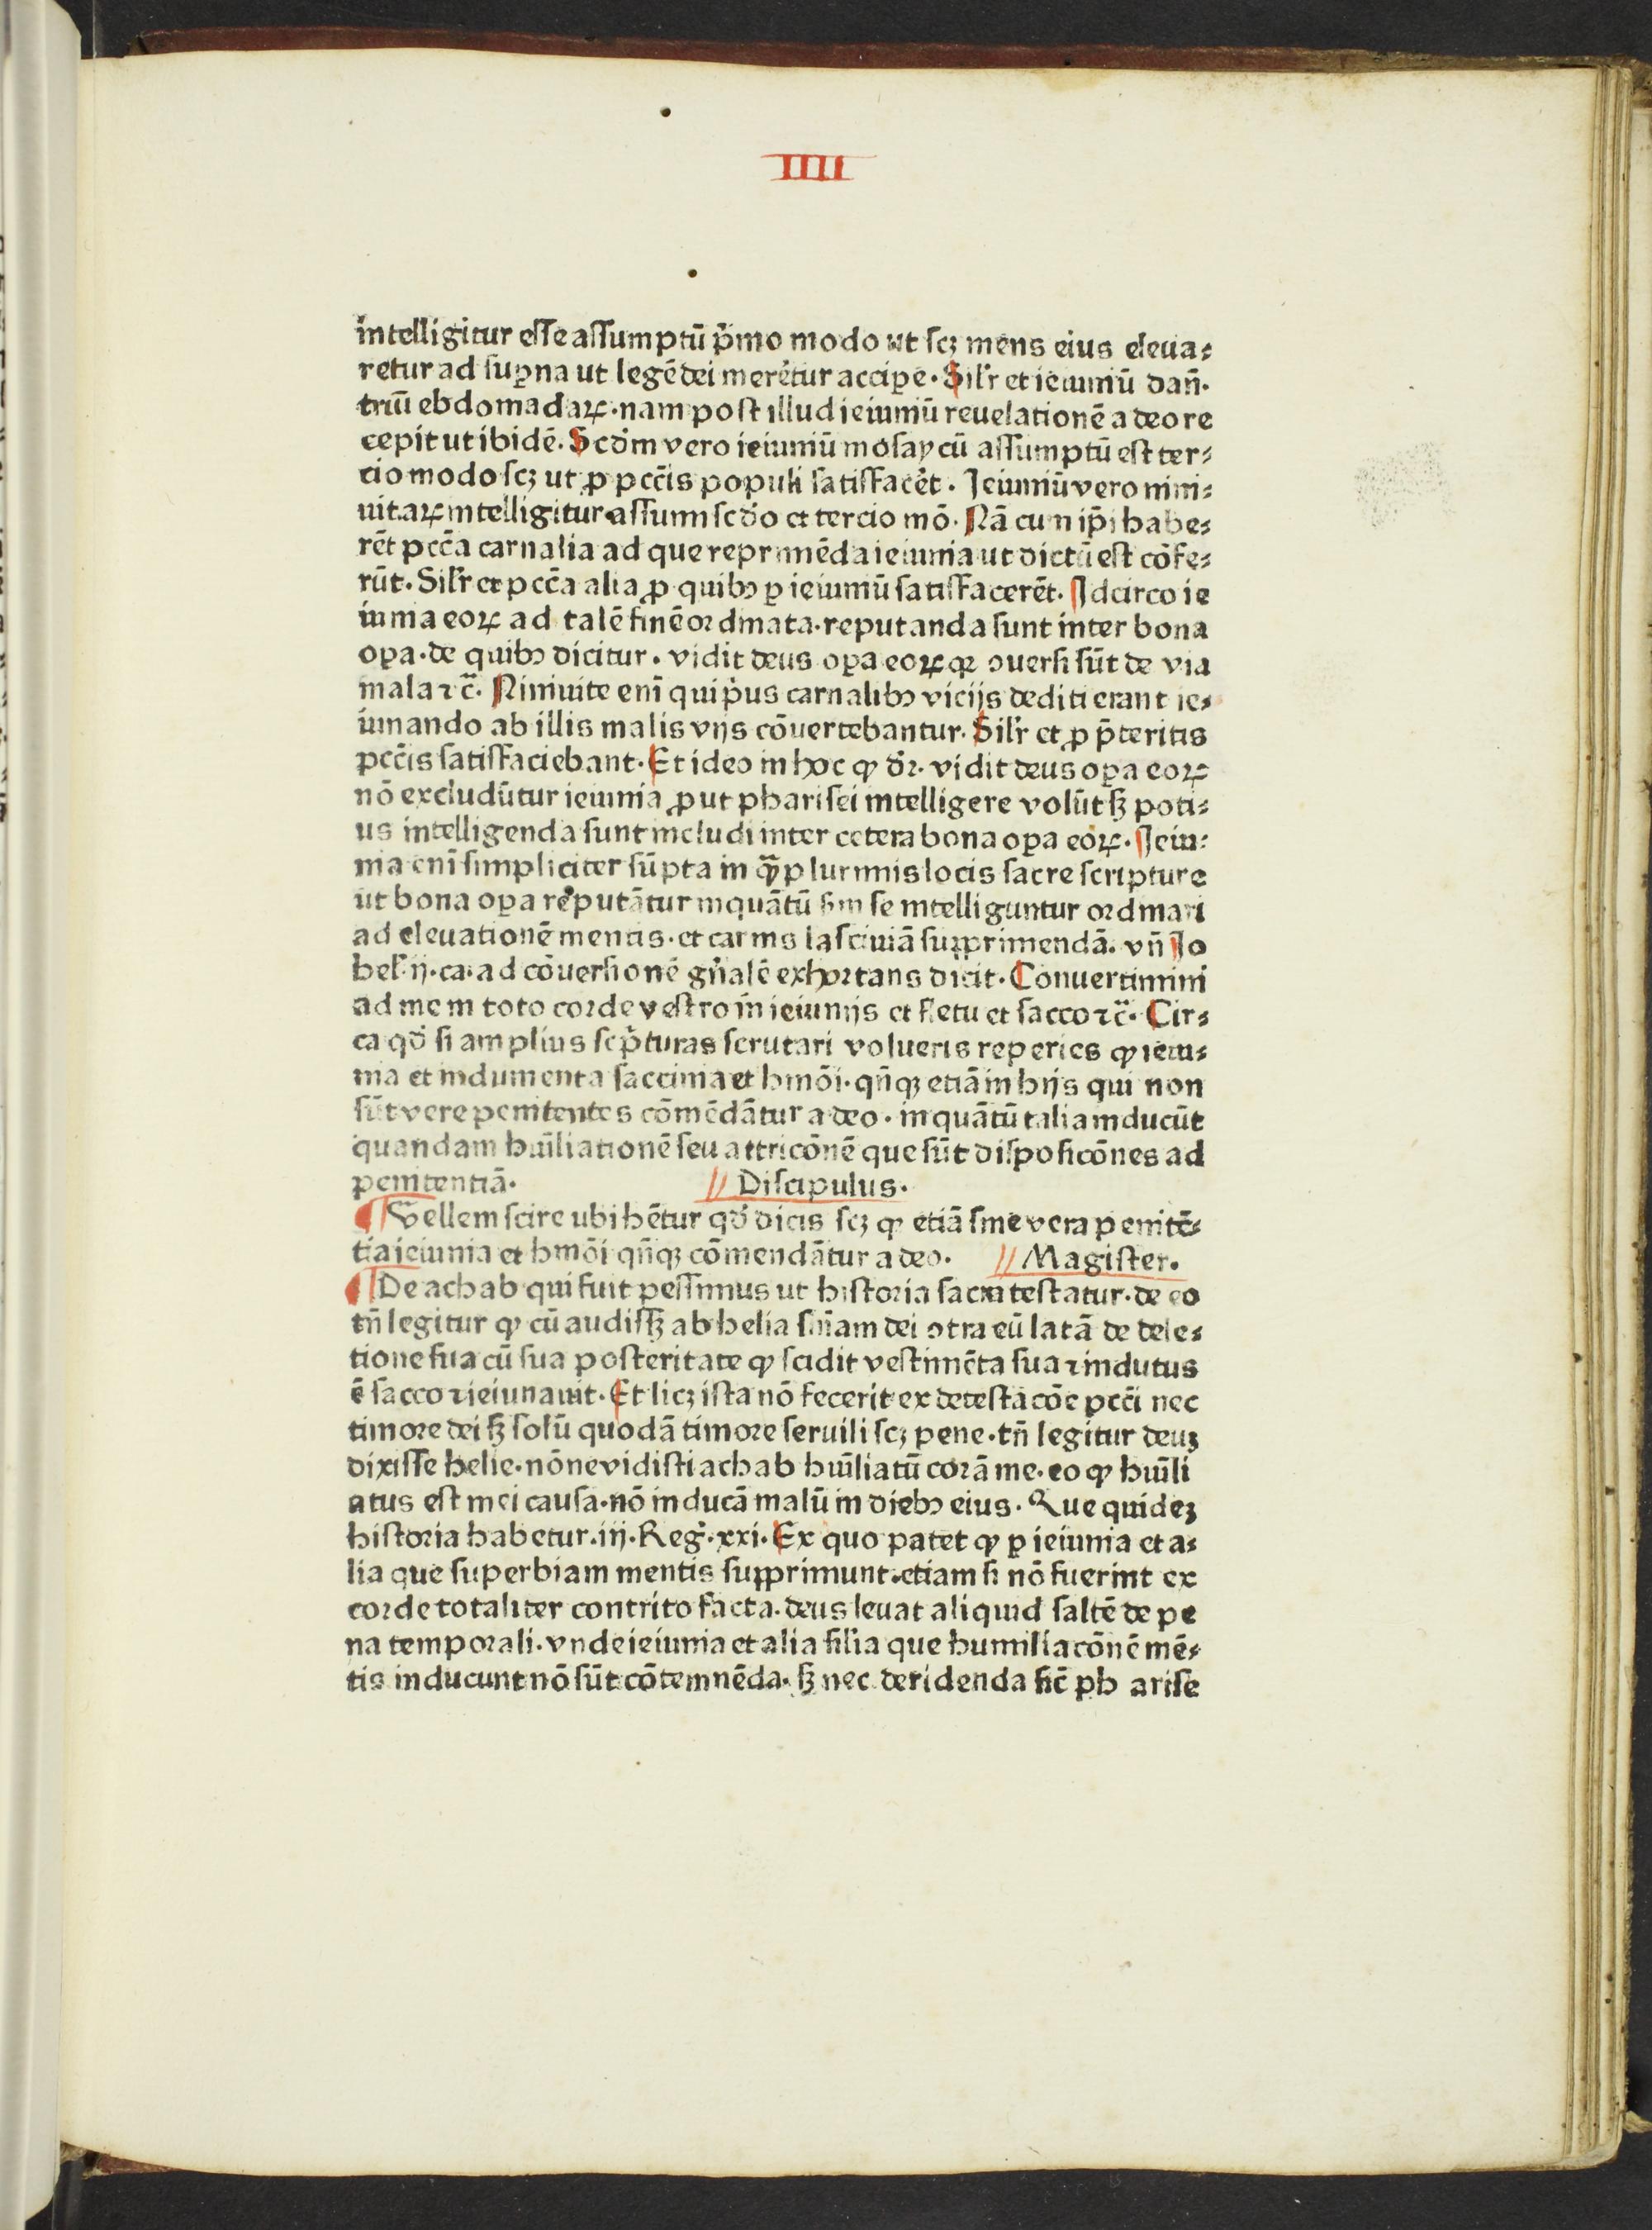 IIII
intelligitur esse assumptū p̄mo modo ut scꝫ mens eius eleua⸗
retur ad suꝑna ut legē dei merētur acciꝑe. Silr̄ et ieiuniū dan̄.
triū ebdomadaꝝ. nam post illud ieiuniū reuelationē a deo re
cepit ut ibidē. Scd̄m vero ieiuniū mosaycū assumptū est ter⸗
cio modo scꝫ ut ꝓ pcc̄is populi satisfacēt. Ieiuniū vero nini⸗
uitaꝝ intelligitur assumi scd̄o et tercio mō. Nā cum ip̄i habe⸗
rēt pcc̄a carnalia ad que reprimēda ieiunia ut dictū est cōfe⸗
rūt. Silr̄ et pcc̄a alia ꝓ quibꝰ ꝑ ieiuniū satisfacerēt. Idcirco ie
iunia eoꝝ ad talē finē ordinata. reputanda sunt inter bona
oꝑa. de quibꝰ dicitur. vidit deus oꝑa eoꝝ qꝛ ꝯuersi sūt de via
mala ⁊c̄. Niniuite eni qui pͥus carnalibꝰ vicijs dediti erant ie⸗
iunando ab illis malis vijs cōuertebantur. Silr̄ et ꝓ p̄teritis
pcc̄is satisfaciebant. Et ideo in hoc ꝙ dr̄. vidit deus oꝑa eoꝝ
nō excludūtur ieiunia ꝓut pharisei intelligere volūt sꝫ poti⸗
us intelligenda sunt includi inter cetera bona oꝑa eoꝝ. Ieiu⸗
nia eni simpliciter sūpta in ꝙ̄plurimis locis sacre scripture
ut bona oꝑa reputātur inquātū scd̄m se intelliguntur ordinari
ad eleuationē mentis. et carnis lasciuiā supprimendā. vn̄ Io
hel. ij. ca. ad cōuersionē gn̄alē exhortans dicit. Conuertimini
ad me in toto corde vestro in ieiunijs et fletu et sacco ⁊c̄. Cir⸗
ca qd̄ si amplius scp̄turas scrutari volueris reperies ꝙ ieiu⸗
nia et indumenta saccinia et hmōi. qn̄qꝫ etiā in hijs qui non
sūt vere penitentes cōmēdātur a deo. inquātū talia inducūt
quandam hūiliationē seu attricōnē que sūt disposicōnes ad
penitentiā. Discipulus.
Vellem scire ubi hētur qd̄ dicis scꝫ ꝙ etiā sine vera penitē⸗
tia ieiunia et hmōi qn̄qꝫ cōmendātur a deo. Magister.
De achab qui fuit pessimus ut historia sacra testatur. de eo
tn̄ legitur ꝙ cū audissꝫ ab helia sn̄iam dei ꝯtra eū latā de dele⸗
tione sua cū sua posteritate ꝙ scidit vestimēta sua ⁊ indutus
ē sacco ⁊ ieiunauit. Et licꝫ ista nō fecerit ex detestacōe pcc̄i nec
timore dei sꝫ solū quodā timore seruili scꝫ pene. tn̄ legitur deuꝫ
dixisse helie. nōne vidisti achab hūiliatū corā me. eo ꝙ hūili
atus est mei causa. nō inducā malū in diebꝰ eius. Que quideꝫ
historia habetur. iij. Reḡ. xxi. Ex quo patet ꝙ ꝑ ieiunia et a⸗
lia que superbiam mentis supprimunt. etiam si nō fuerint ex
corde totaliter contrito facta. deus leuat aliquid saltē de pe
na temporali. vnde ieiunia et alia silia que humiliacōnē mē⸗
tis inducunt nō sūt cōtemnēda. sꝫ nec deridenda sic̄ ph arise